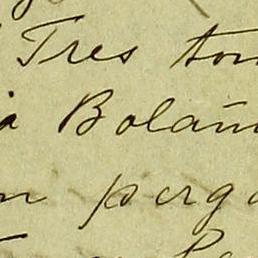 Tres tom
a Bolañ
n perga